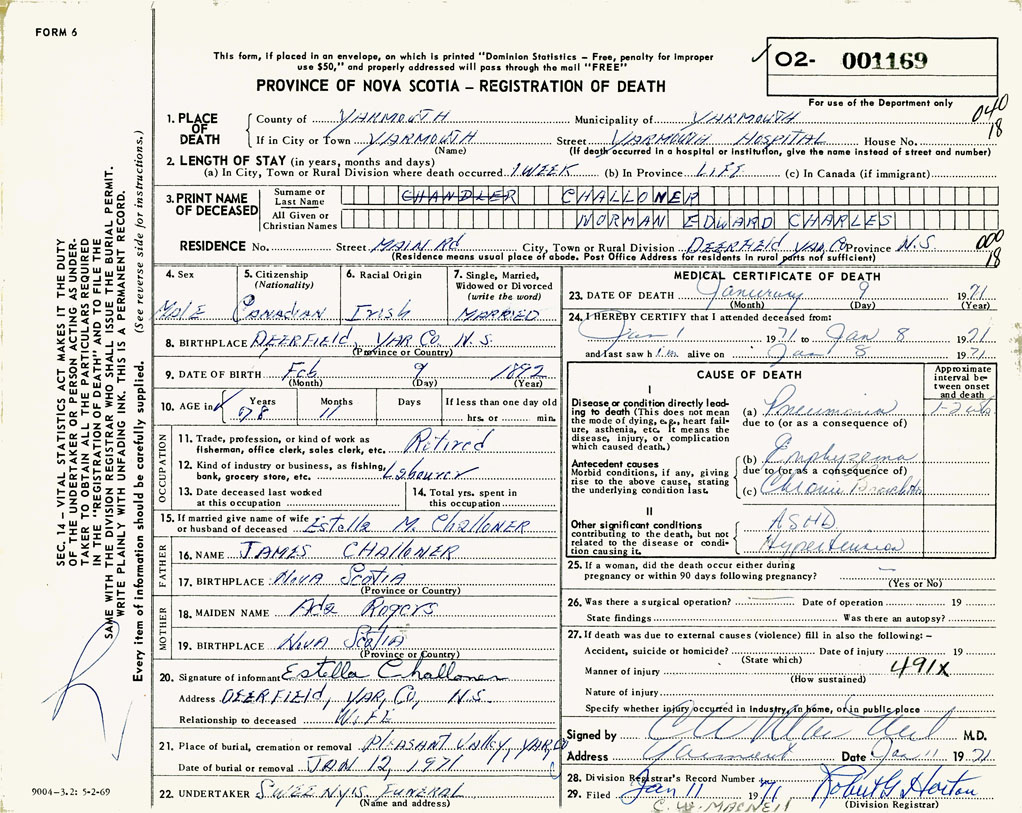 FORM 6
This form, if placed in an envelope, on which is printed "Dominion Statistics – Free, penalty for improper
use $50," and properly addressed will pass through the mail "FREE"
PROVINCE OF NOVA SCOTIA – REGISTRATION OF DEATH
O2- 001169
For use of the Department only
040
18
1. PLACE OF DEATH
County of YARMOUTH Municipality of YARMOUTH
If in City or Town YARMOUTH Street YARMOUTH HOSPITAL House No.
(Name) (If death occurred in a hospital or institution, give the name instead of street and number)
2. LENGTH OF STAY (in years, months and days)
(a) In City, Town or Rural Division where death occurred 1 WEEK (b) In Province LIFE (c) In Canada (if immigrant)
3. PRINT NAME OF DECEASED
Surname or Last Name CHANDLER CHALLONER
All Given or Christian Names NORMAN EDWARD CHARLES
RESIDENCE No. Street MAIN Rd City, Town or Rural Division DEERFIELD YAR, CO Province N.S.
000
18
(Residence means usual place of abode. Post Office Address for residents in rural parts not sufficient)
4. Sex
Male
5. Citizenship
(Nationality)
Canadian
6. Racial Origin
Irish
7. Single, Married,
Widowed or Divorced
(write the word)
MARRIED
8. BIRTHPLACE DEERFIELD, YAR CO. N.S.
(Province or Country)
9. DATE OF BIRTH Feb 9 1892
(Month) (Day) (Year)
10. AGE in Years Months Days If less than one day old
78 11 hrs. or min.
OCCUPATION
11. Trade, profession, or kind of work as
fisherman, office clerk, sales clerk, etc. Retired
12. Kind of industry or business, as fishing,
bank, grocery store, etc. Labourer
13. Date deceased last worked
at this occupation
14. Total yrs. spent in
this occupation
15. If married give name of wife
or husband of deceased Estella M. Challoner
FATHER
16. NAME JAMES CHALLONER
17. BIRTHPLACE NOVA SCOTIA
(Province or Country)
MOTHER
18. MAIDEN NAME Ada Rogers
19. BIRTHPLACE NOVA Scotia
(Province or Country)
20. Signature of informant Estella Challoner
Address DEERFIELD, YAR, CO, N.S.
Relationship to deceased WIFE
21. Place of burial, cremation or removal Pleasant Valley, YAR, CO
Date of burial or removal JAN 12, 1971
22. UNDERTAKER SWEENYS FUNERAL
(Name and address)
MEDICAL CERTIFICATE OF DEATH
23. DATE OF DEATH Janurary 9 1971
(Month) (Day)
24. I HEREBY CERTIFY that I attended deceased from:
Jan 1 1971 to Jan 8 1971
and last saw him alive on Jan 8 1971
CAUSE OF DEATH
Approximate
interval be-
tween onset
and death
I
Disease or condition directly lead-
ing to death (This does not mean
the mode of dying, e.g., heart fail-
ure, asthenia, etc. It means the
disease, injury, or complication
which caused death.)
(a) Pneumonia 1-2 wks
due to (or as a consequence of)
Antecedent causes
Morbid conditions, if any, giving
rise to the above cause, stating
the underlying condition last.
(b) Emphysema
due to (or as a consequence of)
(c) Chronic Bronchitis
II
Other significant conditions
contributing to the death, but not
related to the disease or condi-
tion causing it.
ASHD
Hypertension
25. If a woman, did the death occur either during
pregnancy or within 90 days following pregnancy?
(Yes or No)
26. Was there a surgical operation? Date of operation 19
State findings Was there an autopsy?
27. If death was due to external causes (violence) fill in also the following: –
Accident, suicide or homicide? Date of injury 19
(State which)
Manner of injury 491X
(How sustained)
Nature of injury
Specify whether injury occurred in industry, in home, or in public place
Signed by M.D.
Address Yarmouth Date Jan 11 1971
28. Division Registrar's Record Number
29. Filed Jan 11 1971 Robert G Horton
(Division Registrar)
C. W. MACNEIL
SEC. 14 – VITAL STATISTICS ACT MAKES IT THE DUTY
OF THE UNDERTAKER OR PERSON ACTING AS UNDER-
TAKER TO OBTAIN ALL THE PARTICULARS REQUIRED
IN THE "REGISTRATION OF DEATH" AND TO FILE THE
SAME WITH THE DIVISION REGISTRAR WHO SHALL ISSUE THE BURIAL PERMIT.
WRITE PLAINLY WITH UNFADING INK. THIS IS A PERMANENT RECORD.
Every item of information should be carefully supplied. (See reverse side for instructions.)
9004-3.2: 5-2-69